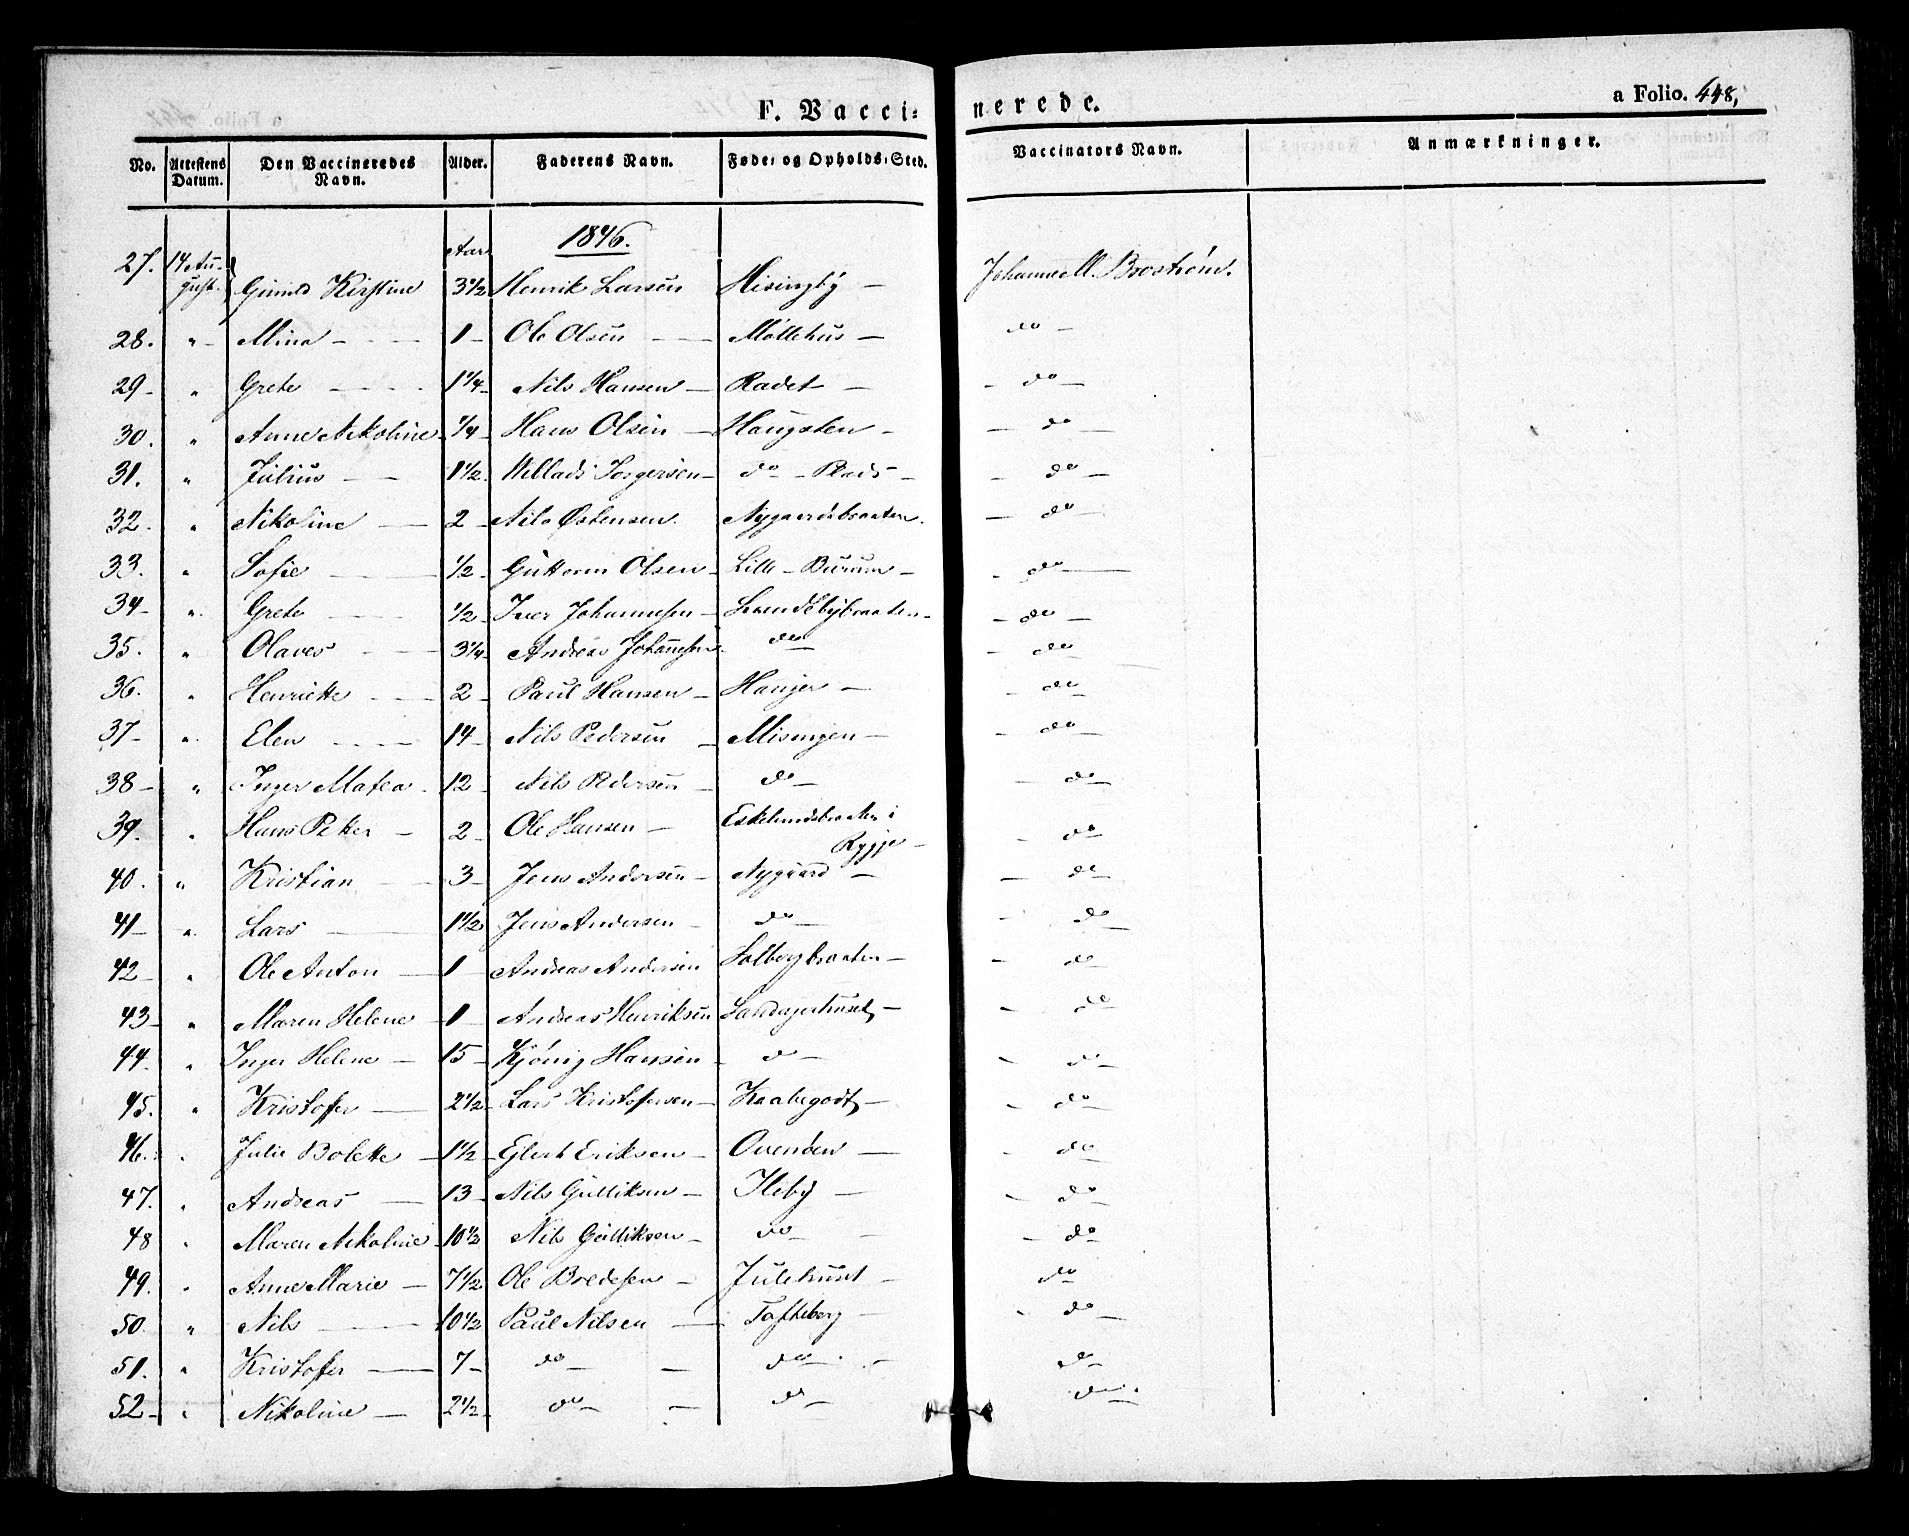 F. Vacci-
nerede.
a Folio. 448,
No.
Attestens Datum.
Den Vaccineredes Navn.
Alder.
Faderens Navn.
Føde- og Opholds-Sted.
Vaccinators Navn.
Anmærkninger.
1846.
Aar
27. 14 Au-gust. Gunild Kirstine 3 1/2 Henrik Larsen Missingby — Johanne M. Brostrøm.
28. " Mina — 1 — Ole Olsen — Möllehus — do —
29 — " Grete — 1 1/4 Nils Hansen — Radet — — do —
30. " Anne Nikoline 1/4 Hans Olsen — Haugsten — — do —
31. " Julius — 1 1/2 Millads Torgersen — do — Plads — — do —
32. " Nikoline — 2 — Nils Østensen. Nygaardsbraaten. — do —
33. " Sofie — 1/2 — Guttorm Olsen — Lille — Burum — — do —
34 — " Grete — 1/2 — Iver Johannesen — Lundebybraaten — — do —
35. " Olaves — 3 1/4 — Andreas Johannesen do — do —
36. " Henriette — 2 — Paul Hansen — Hauger — — do —
37 — " Elen — 14 — Nils Pedersen — Misingen — — do —
38 — " Inger Matea — 12 — Nils Pedersen — do — — do —
39. " Hans Petter — 2 — Ole Hansen — Eskelundsbraaten i Rygge — — do —
40. " Kristian — 3 — Jens Andersen — Nygaard — — do —
41 — " Lars — 1 1/2 Jens Andersen — do — — do —
42 — " Ole Anton — 1 — Andreas Andersen Solbergbraaten — — do —
43 — " Maren Helene — 1 — Andreas Henriksen Sandagerhuset — — do —
44. " Inger Helene — 15 — Kjönig Hansen — do — — do —
45. " Kristoffer — 2 1/2 — Lars Kristofersen — Kaabegodt — — do —
46. " Julie Bolette — 1 1/2 — Glert Eriksen — Ovenden — — do —
47. " Andreas — 13 — Nils Gulliksen — Ileby — — do —
48 " Maren Nikoline — 10 1/2 Nils Gulliksen — do — — do —
49. " Anne Marie — 7 1/2 Ole Bredesen — Julehuset — do
50. " Nils — 10 1/2 Paul Nilsen — Tofteberg — — do —
51. " Kristoffer — 7 — do — do — do —
52 — " Nikoline — 2 1/2 — do — do — do